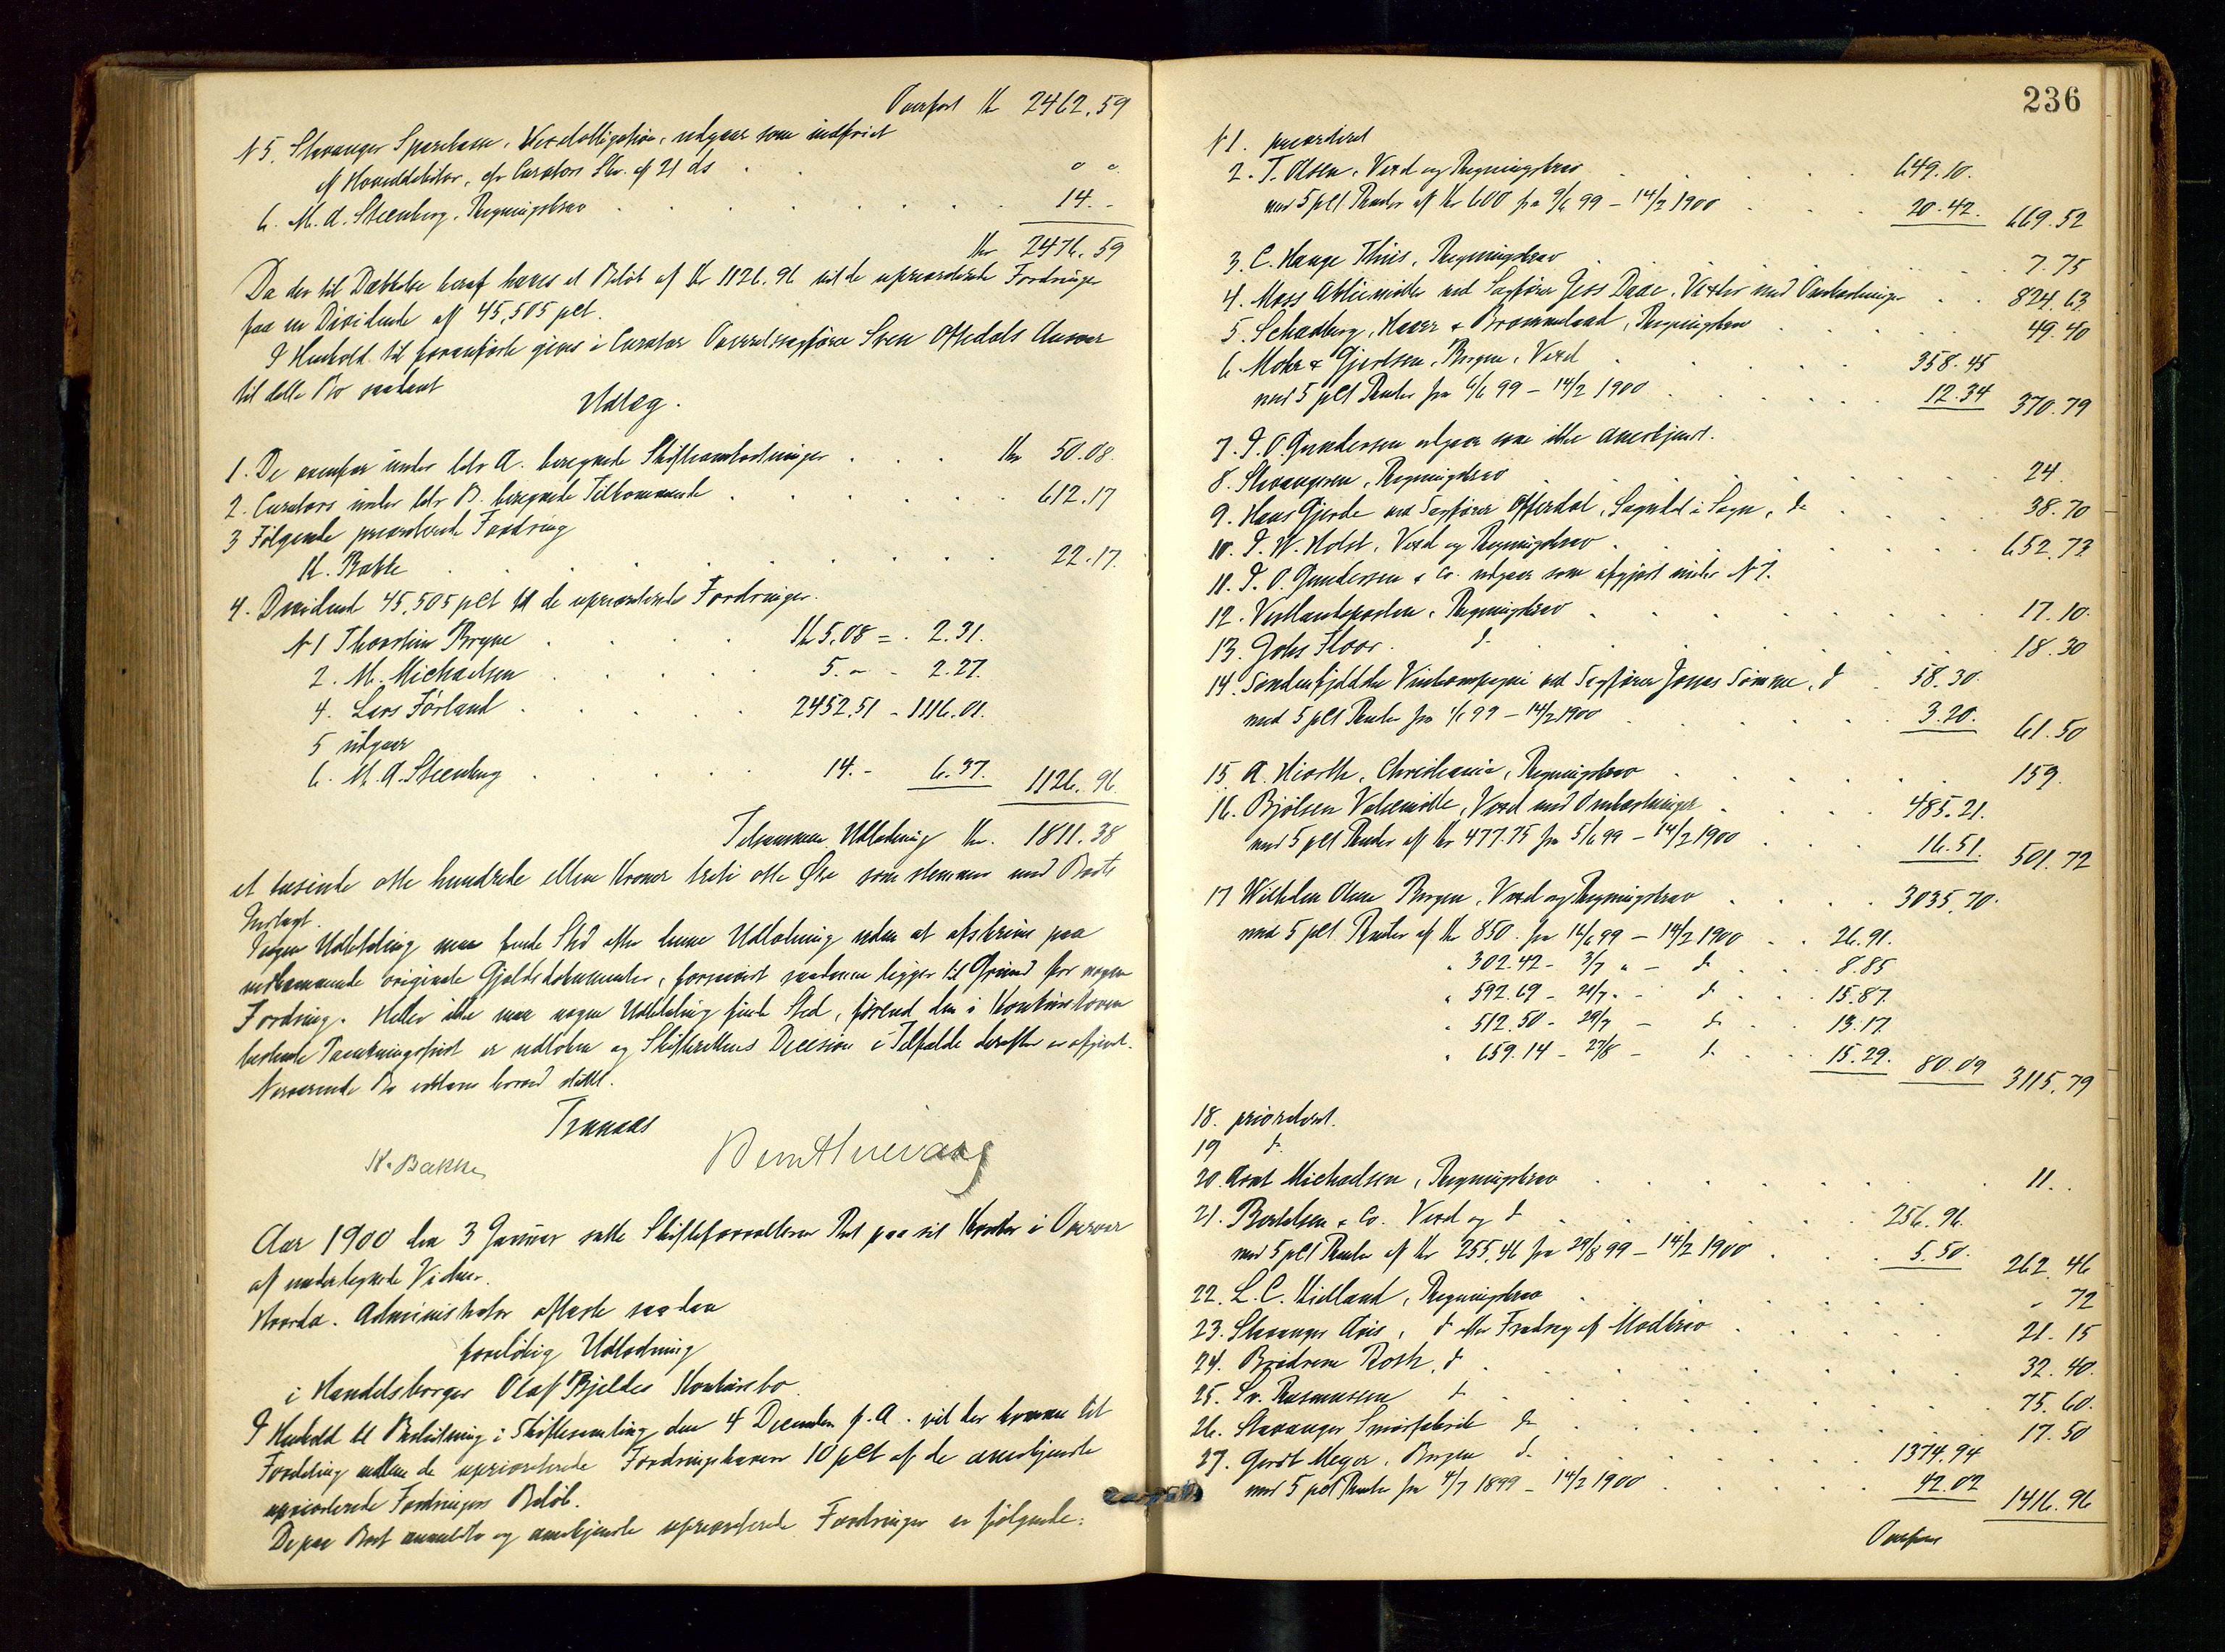 Overført Kr 2462.59
N 5. Stavanger Sparekasse, Vexelobligation, udgaar som indfriet
af Hoveddebitor, efr Curators Skr. af 21 ds . . " "
6. M. A. Steenberg, Regningskrav . . . . . 14.-
Kr 2476.59
Da der til Dækkelse heraf haves et Beløb af Kr 1126.96 vil de uprioriterede Fordringer
faa en Dividende af 45,505 pCt.
I Henhold til foranførte gives i Curator Overretssagfører Sven Oftedals Ansvar
til dette Bo saadant
Udlæg.
1. De ovenfor under litr A. beregnede Skifteomkostninger . . . Kr 50.08.
2. Curators under litr B. beregnede Tilkommende . . . . . 612.17
3 Følgende prioriterede Fordring
K. Bakke . . . . . . . 22.17.
4. Dividend 45,505 pCt til de uprioriterede Fordringer.
N 1 Thorstein Bryne . . . Kr 5,08 = . 2.31.
2. M. Michaelsen . . . 5. - - 2.27.
4. Lars Førland . . . . 2452.51 - 1116.01.
5 udgaar
6. M. A. Steenberg . . . . 14.- 6.37. 1126.96
Tilsammen Udlodning Kr. 1811.38
et tusinde otte hundrede elleve Kroner treti otte Øre som stemmer med Boets
Indtægt.
Ingen Uddeling maa finde Sted efter denne Udlodning uden at afskrives paa
vedkommende originale Gjældsdokumenter, forsaavidt saadanne ligger til Grund for nogen
Fordring. Heller ikke maa nogen Uddeling finde Sted, førend den i Konkursloven
bestemte Paaankningsfrist er udløben og Skifterettens Decision i Tilfælde derefter er afgivet.
Nærværende Bo erklæres herved sluttet.
Tranaas
K. Bakke
Aar 1900 den 3 Januar satte Skifteforvalteren Ret paa sit Kontor i Overvær
af undertegnede Vidner.
Hvorda. Administrator aflagde saadan
foreløbig Udlodning
i Handelsborger Olaf Bjeldes Konkursbo.
I Henhold til Beslutning i Skiftesamling den 4 December f. A. vil der komme til
Fordeling mellem de uprioriterede Fordringshavere 10 pCt af de anerkjendte
uprioriterede Fordringers Beløb.
De paa Boet anmeldte og anerkjendte uprioriterede Fordringer er følgende:
236
N 1. prioriteret
2. T. Olsen, Vexel og Regningskrav . . . . 649.10.
med 5 pCt Renter af Kr 600 fra 9/6 99 - 14/2 1900 . . . 20.42. 669.52
3. C. Hauge Thiis, Regningskrav . . . . . . 7.75
4. Moss Aktiemølle ved Sagfører Jess Daae, Vexler med Omkostninger . . 824.63
5. Schadberg, Haver & Brommeland, Regningskrav . . . . 49.40
6. Mohr & Gjertsen, Bergen, Vexel . . . . 358.45
med 5 pCt Renter fra 6/6 99 - 14/2 1900 . . . . 12.34 370.79
7. I. O. Gundersen udgaar som ikke anerkjendt.
8. Stavangeren, Regningskrav . . . . . . 24.
9. Hans Gjerde ved Sagfører Offerdal, Sogndal i Sogn, do . . . 38.70
10. I. W. Holst, Vexel og Regningskrav . . . . . 652.73
11. I. O. Gundersen & Co. udgaar som afgjort under N 7.
12. Vestlandsposten, Regningskrav . . . . . . 17.10.
13. Johs Floor. do . . . . . . 18.30
14. Søndenfjeldske Vinkompagni ved Sagfører Jonas Sømme, do . 58.30.
med 5 pCt Renter fra 1/6 99 - 14/2 1900 . . . . 3.20. 61.50
15 A. Hiorth, Christiania, Regningskrav . . . . . 159.
16. Bjølsen Valsemølle, Vexel med Omkostninger . . . . 485.21.
med 5 pCt Renter af Kr 477.75 fra 5/6 99 - 14/2 1900 . . . 16.51. 501.72
17 Wilhelm Olsen Bergen, Vexel og Regningskrav . . . . 3035.70.
med 5 pCt Renter af Kr 850. fra 16/6 99 - 14/2 1900 . . 26.91.
" 302.42 - 3/7 " - do . . 8.85
" 592.69 - 21/7 . - do . . 15.87.
" 512.50 - 29/7 - do . . 13.17.
" 659.14 - 27/8 - do . . 15.29. 80.09 3115.79
18. prioriteret.
19 do
20. Arnt Michaelsen, Regningskrav . . . . . . 11. .
21. Bertelsen & Co. Vexel og do . . . . . 256.96.
med 5 pCt Renter af Kr 255,46 fra 29/8 99 - 14/2 1900 . . . 5.50. 262.46
22. L. C. Kielland, Regningskrav . . . . . . - 72
23. Stavanger Avis, do efter Fradrag af Modkrav . . . . 21.15
24. Brødrene Roth, do . . . . . . . 32.40.
25. Sv. Rasmussen do . . . . . . . 75.60.
26. Stavanger Smørfabrik do . . . . . . 17.50
27. Gerdt Meyer, Bergen do . . . . . 1374.94
med 5 pCt Renter fra 4/7 1899 - 14/2 1900 . . . . 42.02 1416.96
Overføres